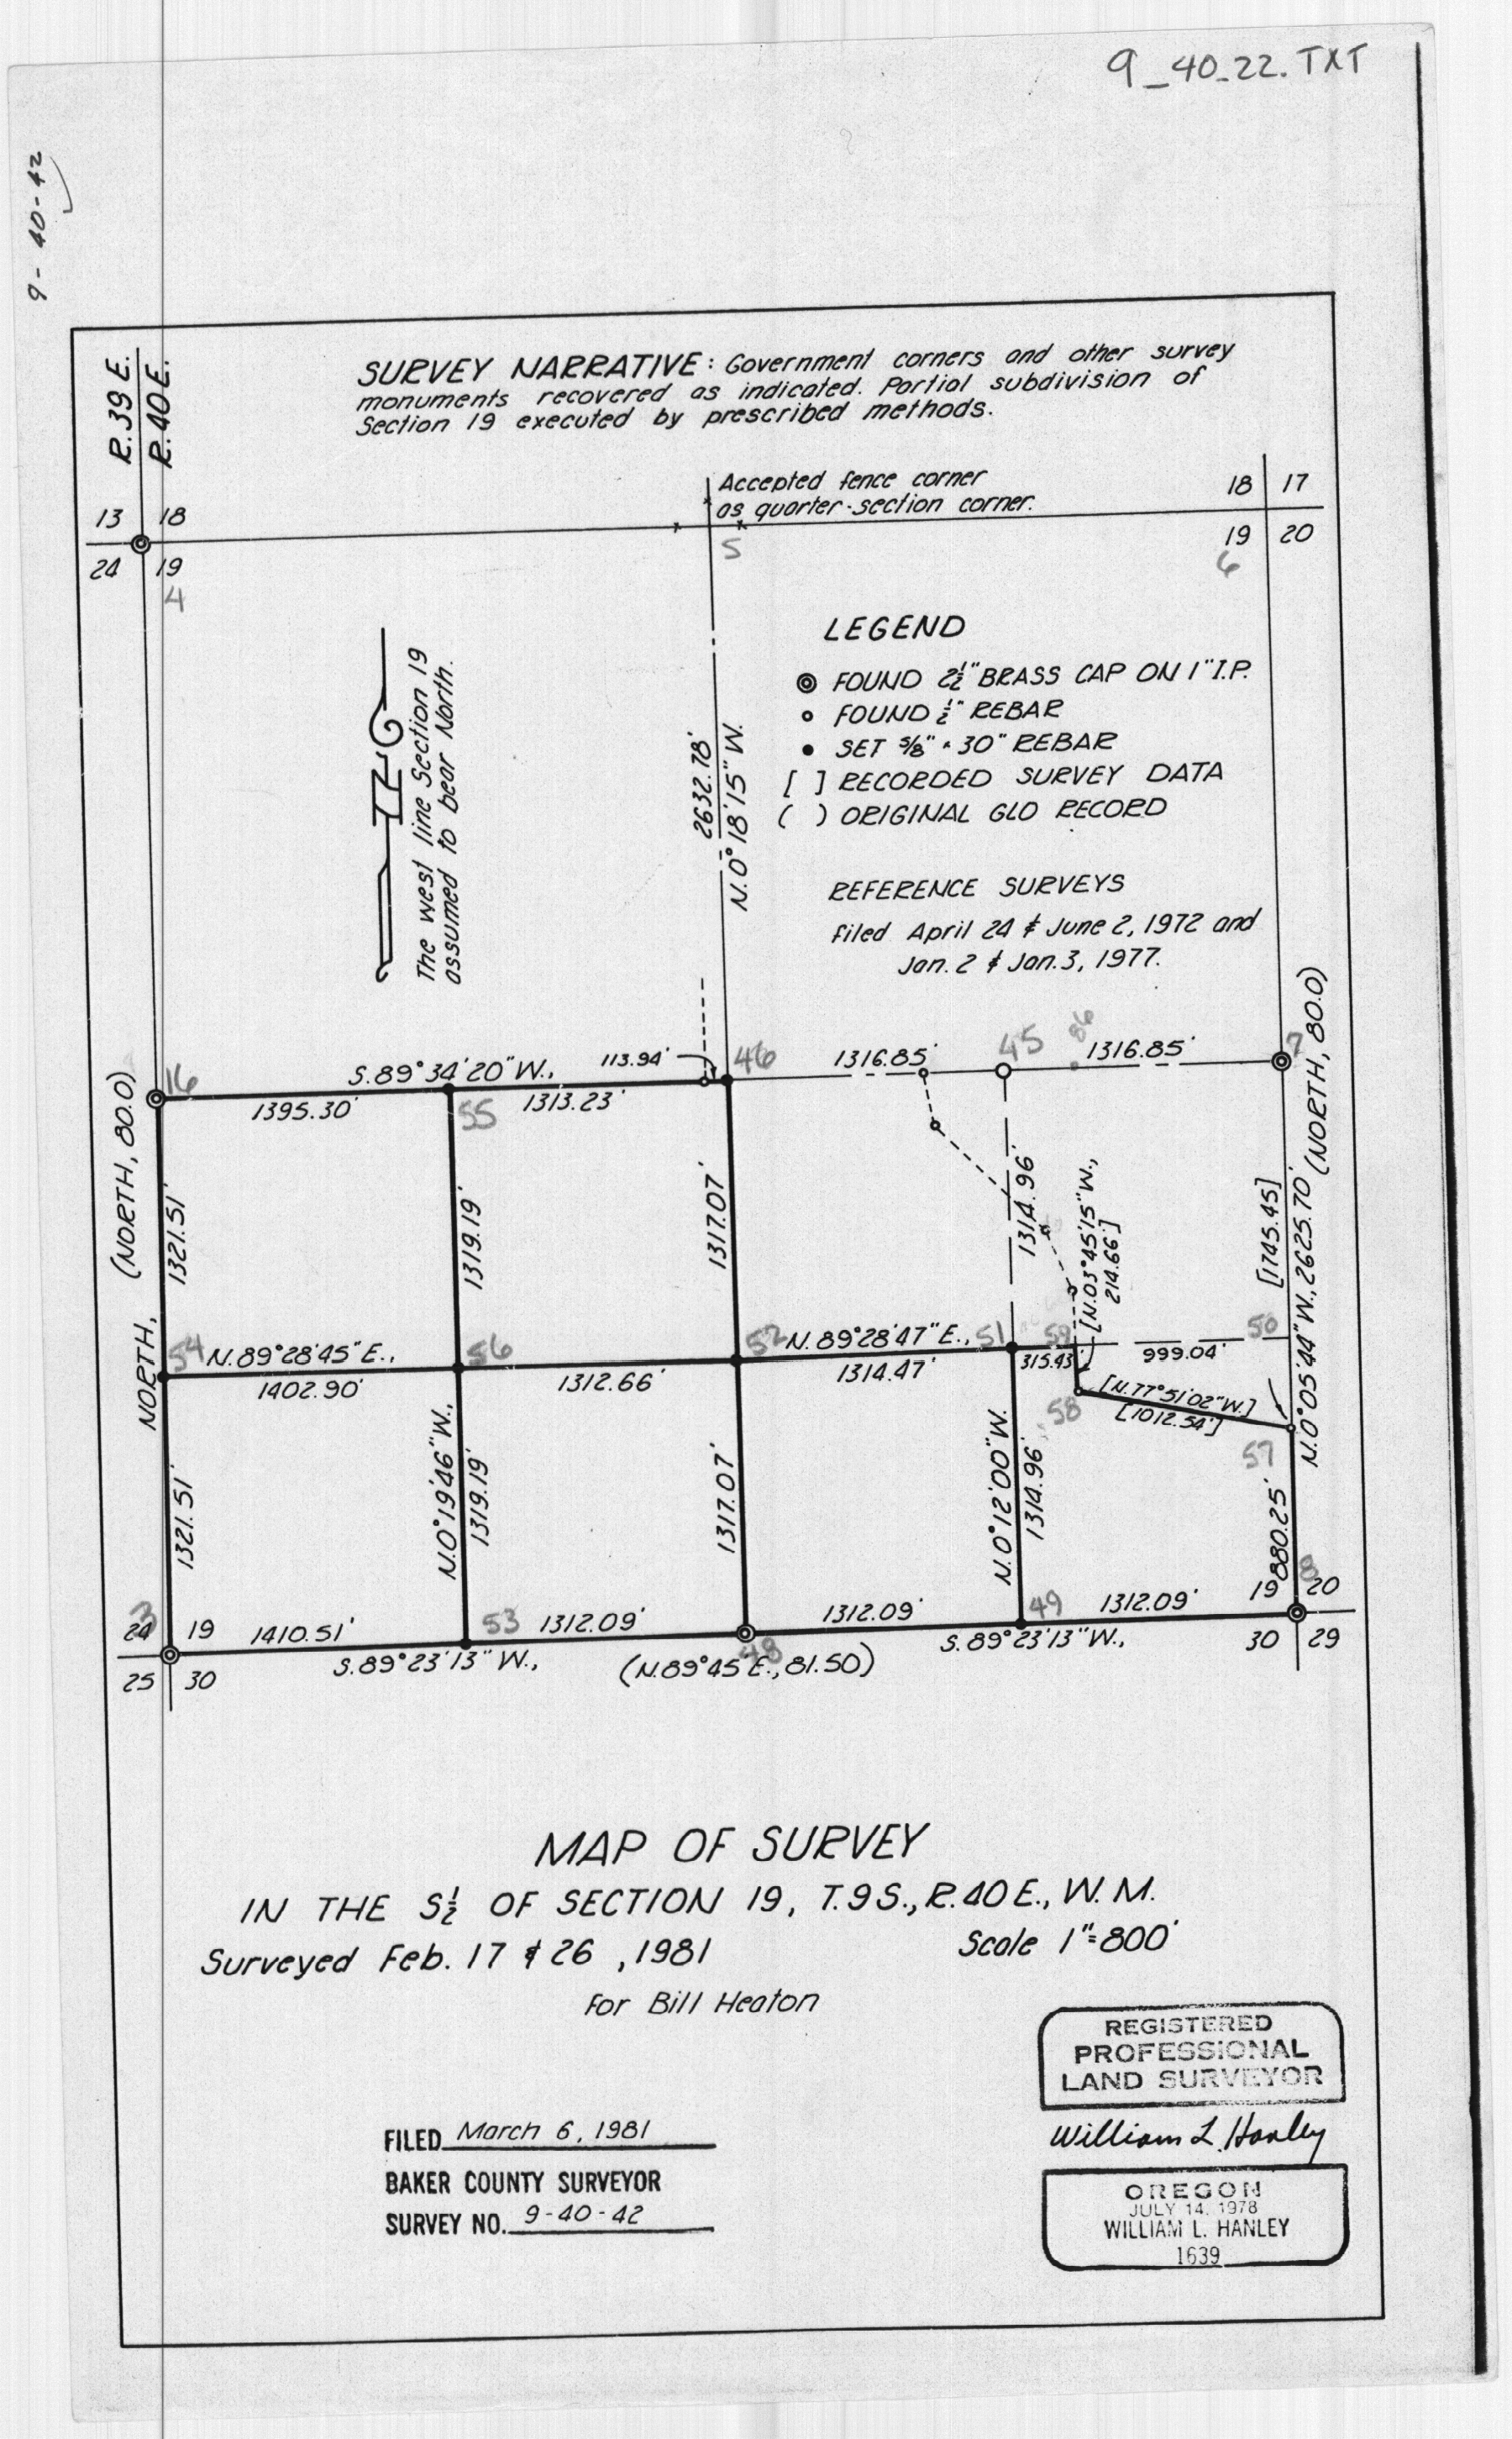 9_40_22.TXT
9-40-42
R.39 E.
R.40 E.
SURVEY NARRATIVE: Government corners and other survey
monuments recovered as indicated. Partial subdivision of
Section 19 executed by prescribed methods.
Accepted fence corner
as quarter-section corner.
13 18
24 19
4
5
18 17
19 20
6
The west line Section 19
assumed to bear North.
2632.78'
N.0°18'15"W.
LEGEND
FOUND 2½" BRASS CAP ON 1" I.P.
FOUND ½" REBAR
SET 5/8" x 30" REBAR
[ ] RECORDED SURVEY DATA
( ) ORIGINAL GLO RECORD
REFERENCE SURVEYS
filed April 24 & June 2, 1972 and
Jan. 2 & Jan. 3, 1977.
16
S.89°34'20"W.,
113.94'
46
1316.85'
45
86
1316.85'
7
1395.30'
55
1313.23'
(NORTH, 80.0)
NORTH,
1321.51'
1319.19'
1317.07'
1314.96'
[N.03°45'15"W.,
214.66']
[1745.45]
N.0°05'44"W., 2625.70'
(NORTH, 80.0)
54
N.89°28'45"E.,
56
52
N.89°28'47"E.,
51
59
50
1402.90'
1312.66'
1314.47'
315.43'
999.04'
58
[N.77°51'02"W.]
[1012.54']
57
1321.51'
N.0°19'46"W.,
1319.19'
1317.07'
N.0°12'00"W.
1314.96'
880.25'
8
3
24 19
25 30
1410.51'
53
1312.09'
48
1312.09'
49
1312.09'
19 20
30 29
S.89°23'13"W.,
(N.89°45'E., 81.50)
S.89°23'13"W.,
MAP OF SURVEY
IN THE S½ OF SECTION 19, T.9S., R.40E., W.M.
Surveyed Feb. 17 & 26 , 1981
Scale 1"=800'
For Bill Heaton
REGISTERED
PROFESSIONAL
LAND SURVEYOR
William L. Hanley
OREGON
JULY 14, 1978
WILLIAM L. HANLEY
1639
FILED March 6, 1981
BAKER COUNTY SURVEYOR
SURVEY NO. 9-40-42